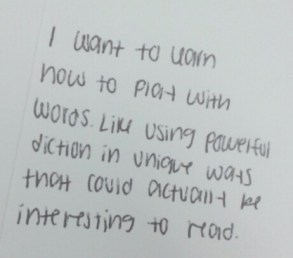 I want to learn
how to play with
words. Like using powerful
diction in unique ways
that could actually be
interesting to read.